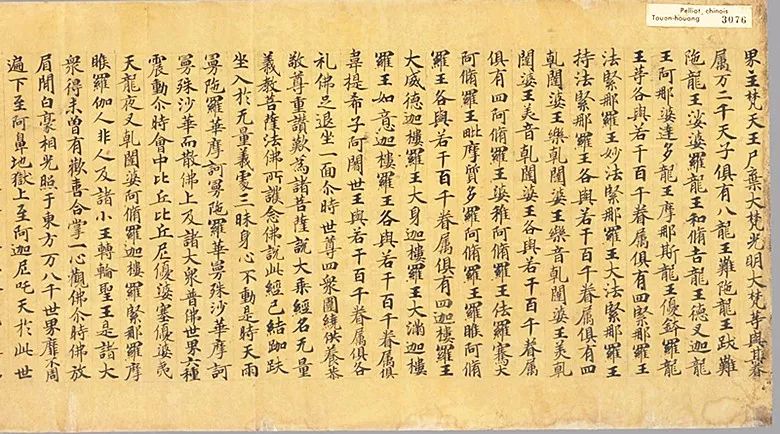 Pelliot, chinois
Touen-houang 3076
界主梵天王尸棄大梵光明大梵等與其眷
属万二千天子俱有八龍王難陁龍王跋難
陁龍王娑羅龍王和脩吉龍王德叉迦龍
王阿那婆達多龍王摩那斯龍王優鉢羅龍
王等各與若干百千眷属俱有四緊那羅王
法緊那羅王妙法緊那羅王大法緊那羅王
持法緊那羅王各與若干百千眷属俱有四
乹闥婆王樂乹闥婆王樂音乹闥婆王美乹
闥婆王美音乹闥婆王各與若干百千眷属
俱有四阿脩羅王婆稚阿脩羅王佉羅騫大
阿脩羅王毗摩質多羅阿脩羅王羅睺阿脩
羅王各與若干百千眷属俱有四迦樓羅王
大威德迦樓羅王大身迦樓羅王大滿迦樓
羅王如意迦樓羅王各與若干百千眷属俱
韋提希子阿闍世王與若干百千眷属俱各
礼佛足退坐一面尒時世尊四衆圍繞供養恭
敬尊重讃歎為諸菩薩說大乘經名无量
義教菩薩法佛所護念佛說此經已結跏趺
坐入於无量義處三昧身心不動是時天雨
曼陁羅華摩訶曼陁羅華曼殊沙華摩訶
曼殊沙華而散佛上及諸大衆普佛世界六種
震動尒時會中比丘比丘尼優婆塞優婆夷
天龍夜叉乹闥婆阿脩羅迦樓羅緊那羅摩
睺羅伽人非人及諸小王轉輪聖王是諸大
衆得未曾有歡喜合掌一心觀佛尒時佛放
眉間白豪相光照于東方万八千世界靡不周
遍下至阿鼻地獄上至阿迦尼吒天於此世